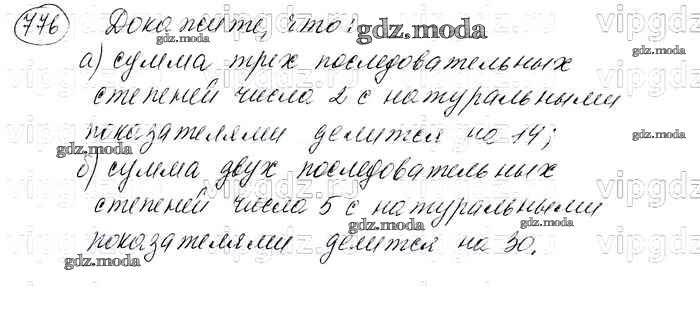 776 Докажите, что:
а) сумма трех последовательных
степеней числа 2 с натуральными
показателями делится на 14;
б) сумма двух последовательных
степеней числа 5 с натуральными
показателями делится на 30.
gdz.moda
gdz.moda
gdz.moda
gdz.moda
gdz.moda
gdz.moda
gdz.moda
gdz.moda
gdz.moda
vipgdz.ru